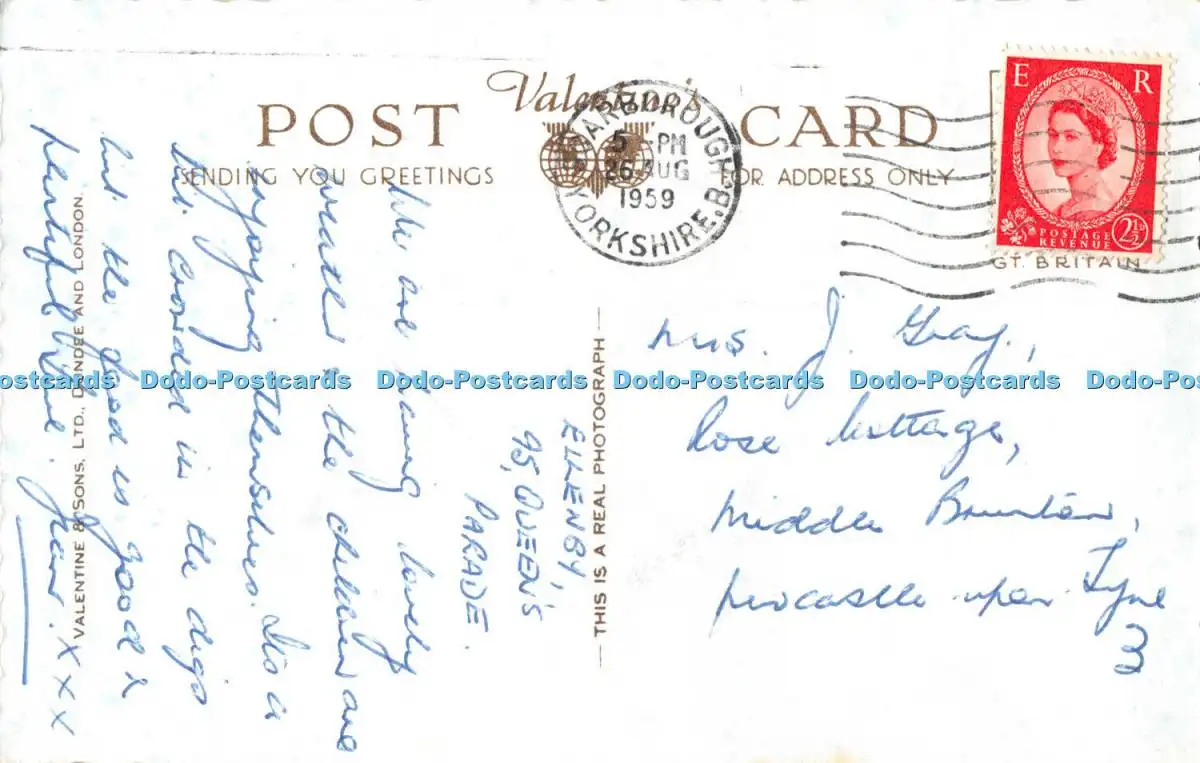 Valentine's
POST CARD
SENDING YOU GREETINGS
FOR ADDRESS ONLY
SCARBOROUGH
5 - PM
26 AUG
1959
YORKSHIRE. B.
E R
POSTAGE
REVENUE
2½D
GT. BRITAIN
ELLENBY,
95, QUEEN'S
PARADE.
We are having lovely
weather & the children are
enjoying themselves. It's a
bit crowded in the digs
but the food is good &
plentiful. Love, Jean. X X X
Mrs. J. Gray.,
Rose Cottage,
Middle Brunton,
Newcastle upon Tyne
3
THIS IS A REAL PHOTOGRAPH
VALENTINE & SONS, LTD., DUNDEE AND LONDON.
Dodo-Postcards Dodo-Postcards Dodo-Postcards Dodo-Postcards Dodo-Postcards